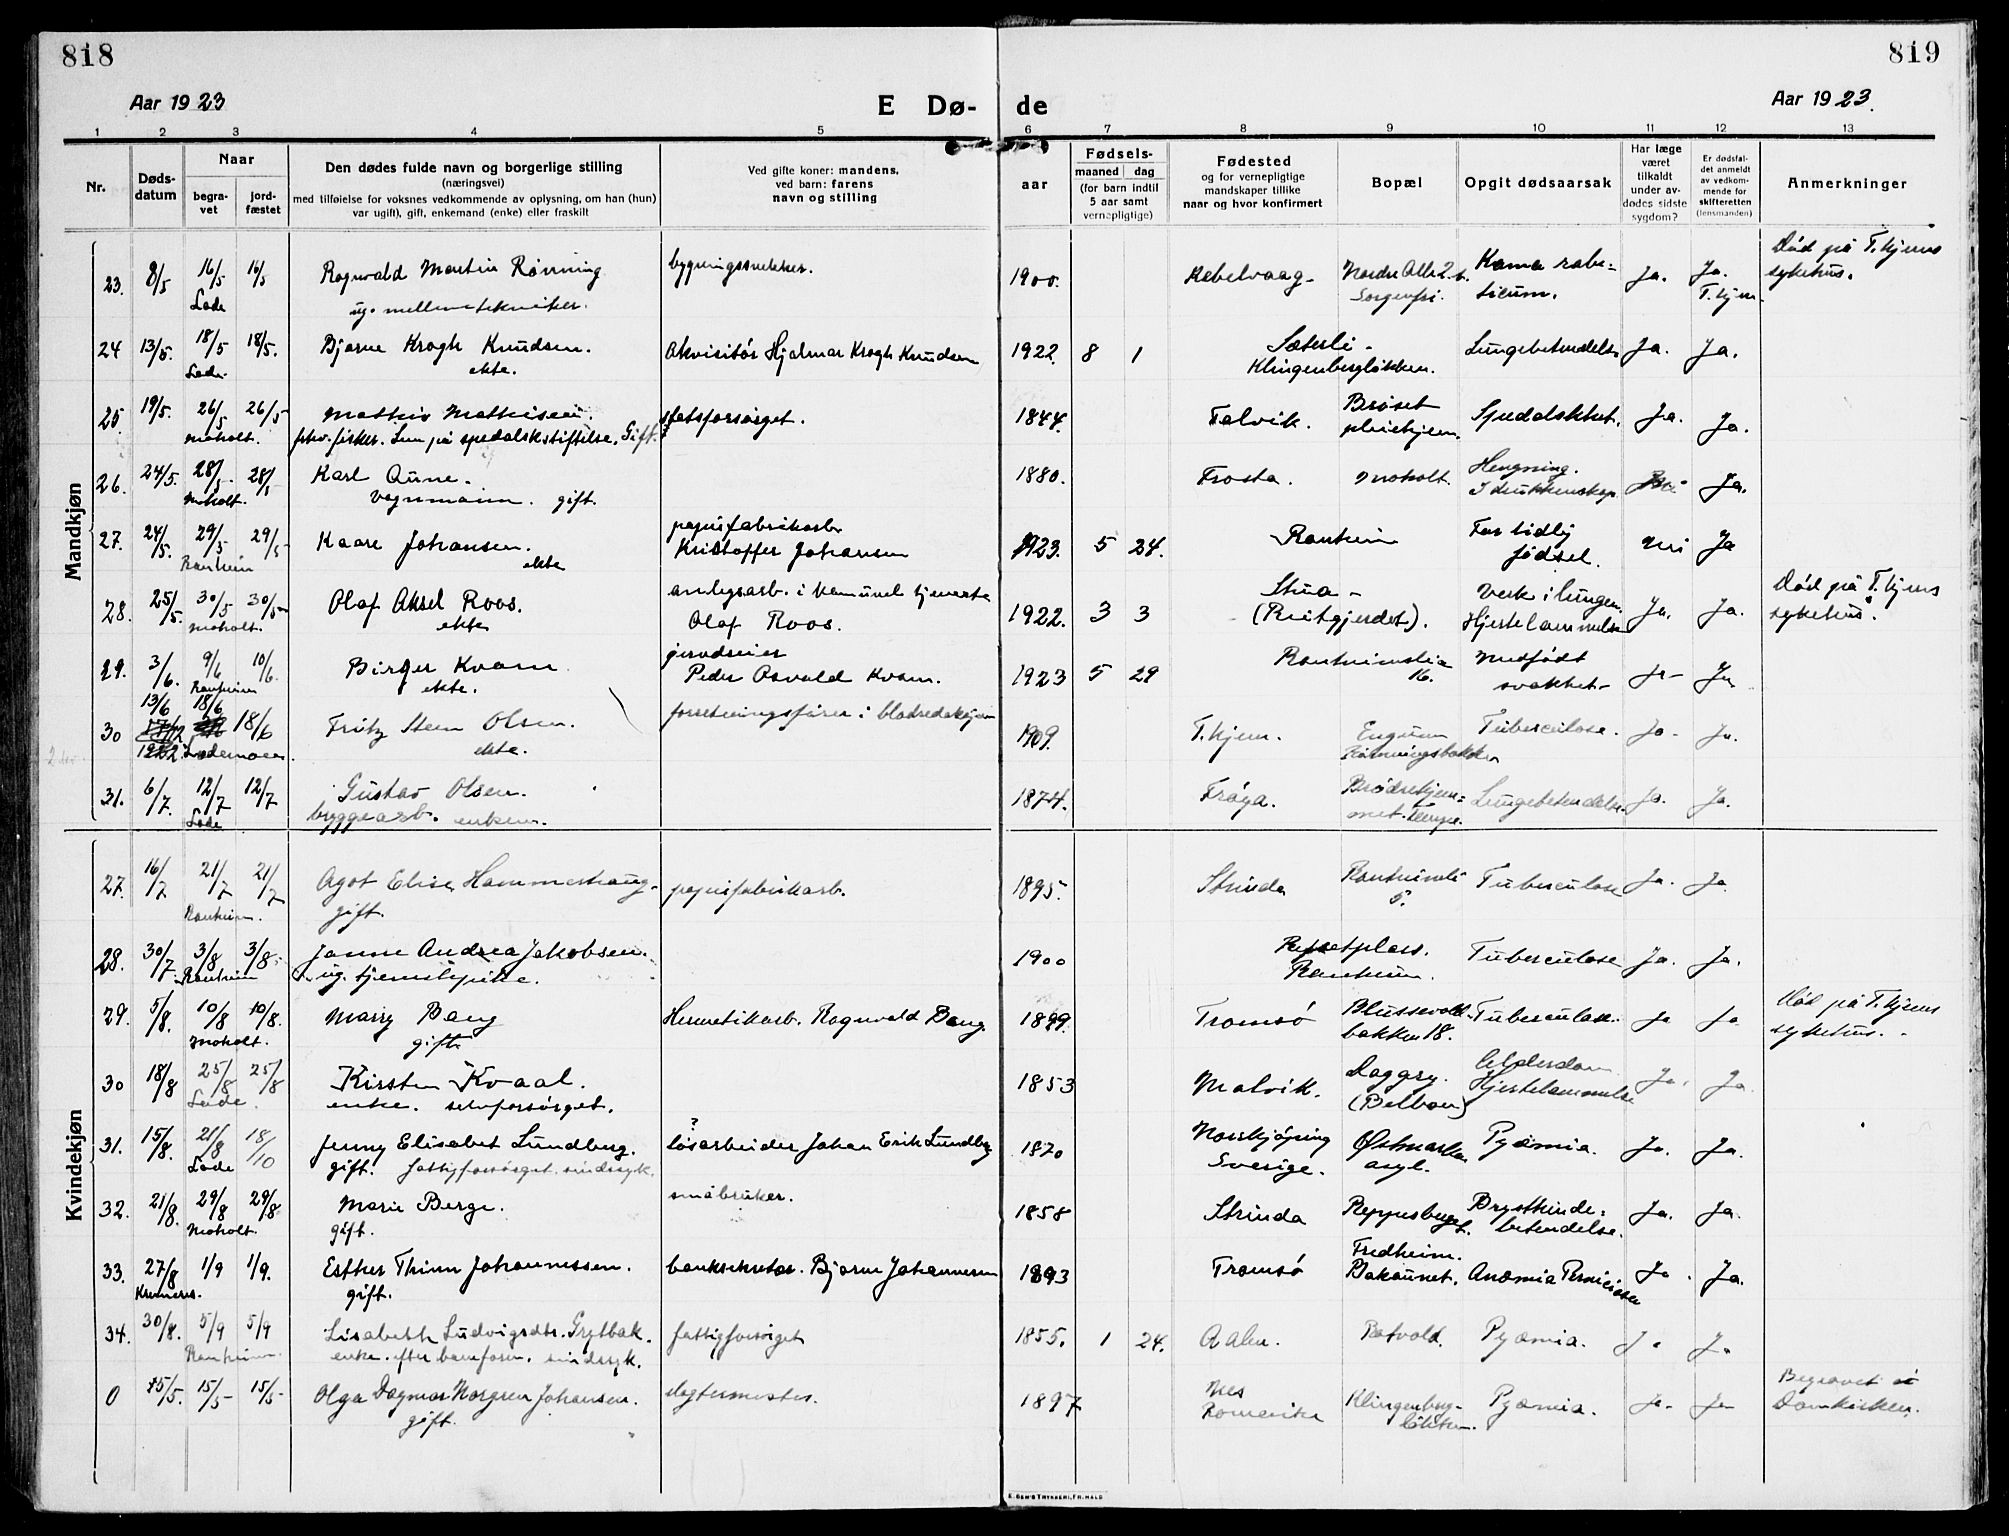 818
819
Aar 1923
E Dø-
de
Aar 1923.
1 2 3 4 5 6 7 8 9 10 11 12 13
Nr.
Døds-
datum
Naar
begra-
vet
jord-
fæstet
Den dødes fulde navn og borgerlige stilling
(næringsvei)
med tilføielse for voksnes vedkommende av oplysning, om han (hun)
var ugift), gift, enkemand (enke) eller fraskilt
Ved gifte koner: mandens,
ved barn: farens
navn og stilling
Fødsels-
aar
maaned dag
(for barn indtil
5 aar samt
vernepligtige)
Fødested
og for vernepligtige
mandskaper tillike
naar og hvor konfirmert
Bopæl
Opgit dødsaarsak
Har læge
været
tilkaldt
under av-
dødes sidste
sygdom?
Er dødsfal-
det anmeldt
av vedkom-
mende for
skifteretten
(lensmanden)
Anmerkninger
Mandkjøn
23. 8/5 16/5 16/5 Ragnvald Martin Rønning bygningssnekker. 1900. Kebelvaag- Nordre Alle 2 Ja. Ja. Død på T.hjems
Lade ug. mellemtekniker. Sorgenfri. T.hjem sykehus.
24 13/5. 18/5 18/5. Bjarne Krogh Knudsen. Akvisitør Hjalmar Krogh Knudsen 1922. 8 1 Sæterli- Lungebetendelse Ja. Ja.
Lade. ekte. Klingenbergløkken.
25. 19/5. 26/5 26/5 Mathis Mathisen. statsforsørget. 1844. Talvik. Brøset Spedalskhet. Ja. Ja.
Moholt. fhv. fisker. Lem på spedalskstiftelse. Gift. pleiehjem.
26. 24/5. 28/5 28/5 Karl Aune. 1880. Frosta. Moholt. Hengning. Ja.
Moholt. vognmann. gift. I drukkenskap.
27. 24/5. 29/5 29/5 Kaare Johansen. papirfabrikarb. 1923. 5 24. Ranheim For tidlig Nei Ja
Ranheim ekte Kristoffer Johansen fødsel.
28. 25/5. 30/5 30/5 Olaf Aksel Roos. anlegsarb. i komunal tjeneste 1922. 3 3 Stua- Verk i lungen. Ja. Ja. Død på T.hjems
Moholt. ekte Olaf Roos. (Reitgjerdet). Hjertelammelse sykehus.
29. 3/6. 9/6 10/6. Birger Kvam. 1923 5 29 Ranheimslia Medfødt Ja- Ja
Ranheim ekte. Peder Osvald Kvam. 16. svakhet-
30 13/6 18/6 18/6 Fritz Steen Olsen. forretningsfører i 1909. T.hjem. Tuberculose. Ja- Ja.
1922. Lademoen. ekte.
31. 6/7. 12/7 12/7 Gustav Olsen. 1874. Frøya. Brødrehjem- Lungebetendelse Ja. Ja.
Lade byggearb. enkem. met.
Kvindekjøn
27. 16/7 21/7 21/7 Agot Elise Hammerhaug. papirfabrikarb. 1895. Strinda Ranheimsli Tuberculose Ja. Ja.
Ranheim. gift. 5.
28. 30/7. 3/8 3/8 Janne Andrea Jakobsen. 1900 Reppetplass. Tuberculose Ja. Ja.
Ranheim ug. tjenestepike. Ranheim.
29. 5/8. 10/8 10/8. Marry Bang Hermetikarb. Ragnvald Bang. 1899. Tromsø Blussevold- Tuberculose. Ja Ja Død på T.hjems
Moholt. gift. bakken 18. sykehus.
30 18/8 25/8 25/8 Kirsten Kvaal. 1853 Malvik. Daggry. Alderdom Ja. Ja.
Lade. enke. selvforsørget. (Belbuen) Hjertelammelse
31. 15/8. 21/8 18/10 Jenny Elisabet Lundberg. løsarbeider Johan Erik Lundberg 1870 Norrkjøping Østmarka Pyæmia. Ja. Ja.
Lade gift. fattigforsørget. sindssyk. Sverige. asyl.
32. 21/8. 29/8 29/8 Marie Berge. småbruker. 1858 Strinda Brysthinde- Ja. Ja.
Moholt. gift. betendelse.
33. 27/8 1/9 1/9. Esther Thinn Johannessen. banksekretær. Bjarne Johannessen 1893 Tromsø Fredheim. Anæmia Perniciosa Ja. Ja.
gift. Bakaunet.
34. 30/8. 5/9 5/9 Lisabeth Ludvigsdtr. Grytbak. fattigforsørget 1855. 1 24. Aalen. Rotvold. Pyæmia. J. J.
Ranheim. enke. efter baneform. sindssyk.
0 15/5. 15/5 15/5 Olga Dagmar Norgren Johansen. slagtermester. 1897 Nes Klingenberg- Pyæmia. Ja- Ja Begravet i
gift. Romerike løkken. Domkirken.
E. SEM'S TRYKKERI, FR.HALD